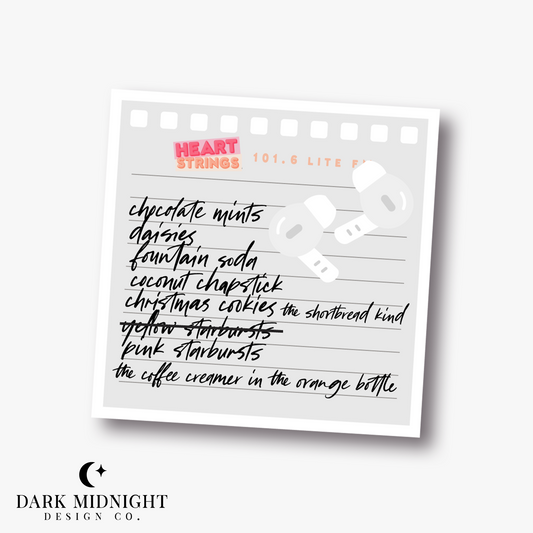 HEART
STRINGS 101.6 LITE F
chocolate mints
daisies
fountain soda
coconut chapstick
christmas cookies the shortbread kind
yellow starbursts
pink starbursts
the coffee creamer in the orange bottle
DARK MIDNIGHT
DESIGN CO.